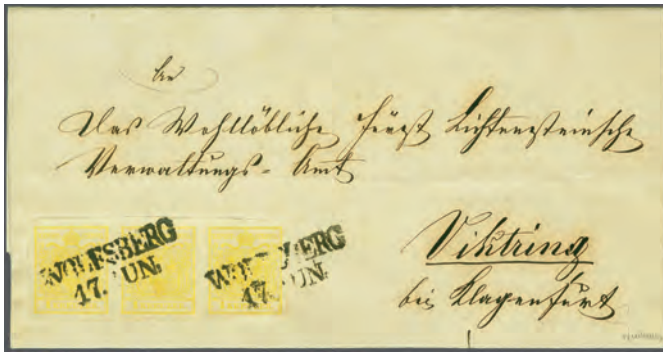 An
Das Wohllöbliche Fürst Lichtensteinsche
Verwaltungs-Amt
WOLFSBERG
17. JUN.
WOLFSBERG
17. JUN.
Viktring
bei Klagenfurt